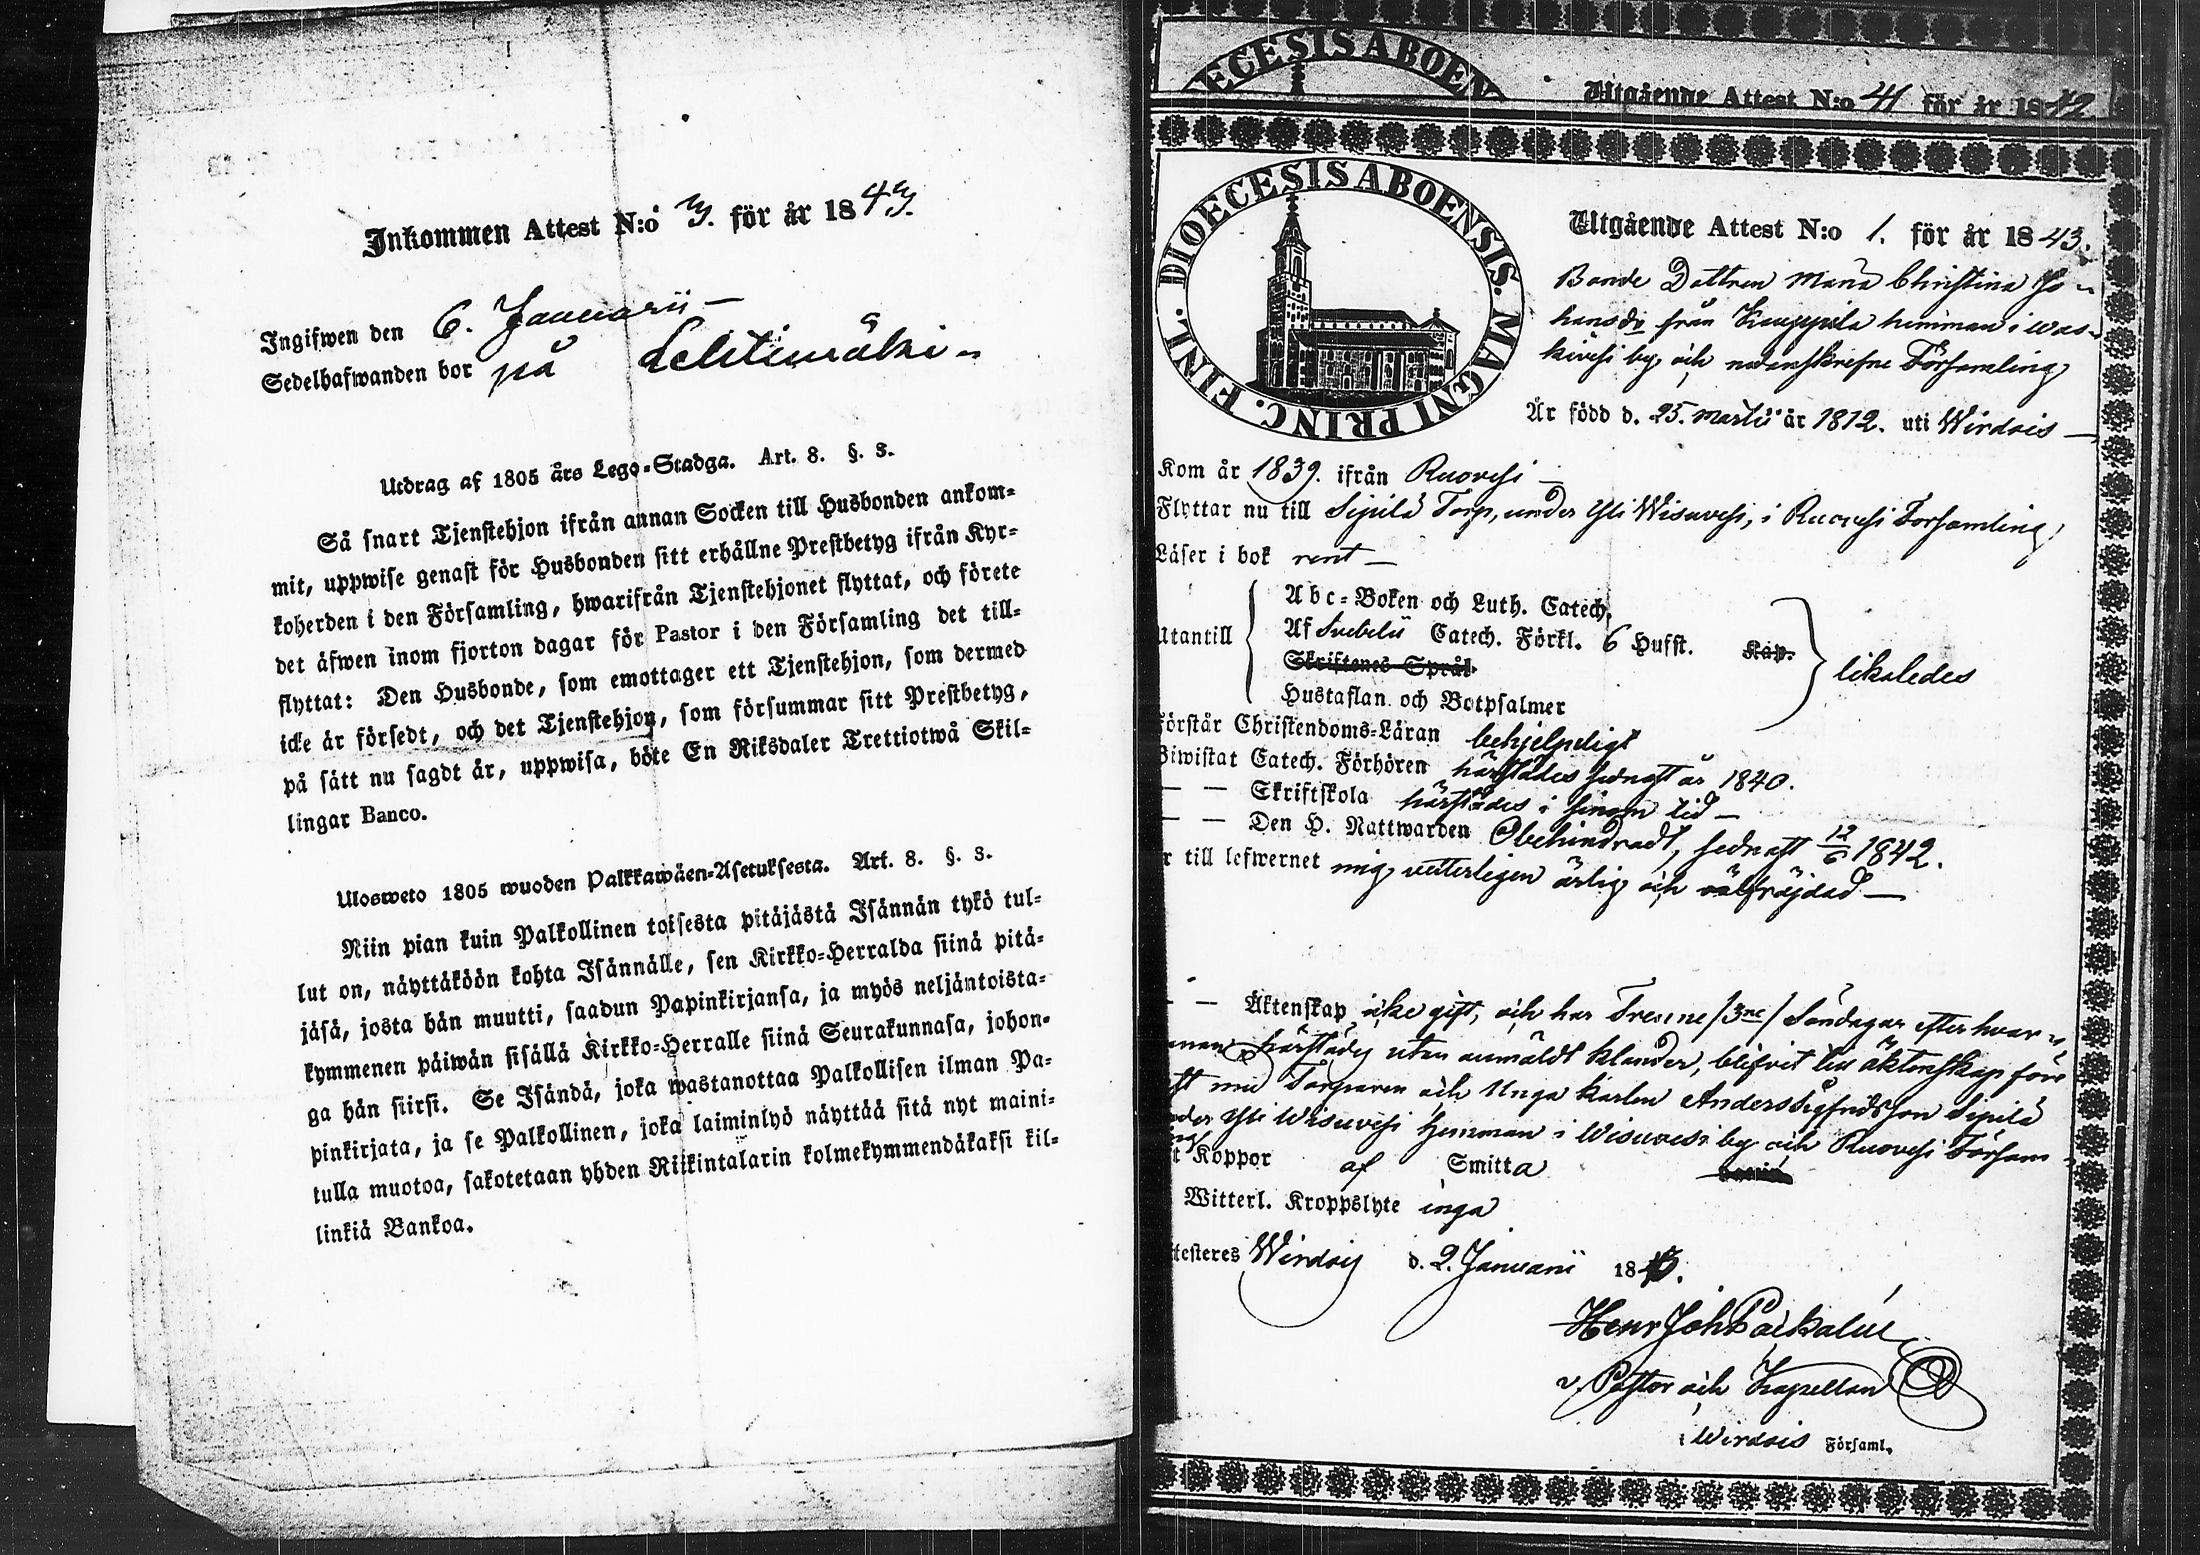 Inkommen Attest N:o 3. för år 1843.
Ingifwen den 6. Januarii —
Sedelhafwanden bor på
Utdrag af 1805 års Lego-Stadga. Art. 8. §. 3.
Så snart Tjenstehjon ifrån annan Socken till Husbonden ankom-
mit, uppwise genast för Husbonden sitt erhållne Prestbetyg ifrån Kyr-
koherden i den Församling, hwarifrån Tjenstehjonet flyttat, och förete
det äfwen inom fjorton dagar för Pastor i den Församling det till-
flyttat: Den Husbonde, som emottager ett Tjenstehjon, som dermed
icke är försedt, och det Tjenstehjon, som försummar sitt Prestbetyg,
på sätt nu sagdt är, uppwisa, böte En Riksdaler Trettiotwå Skil-
lingar Banco.
Ulosweto 1805 wuoden Palkkawäen-Asetuksesta. Art. 8. §. 3.
Niin pian kuin Palkollinen toisesta pitäjästä Isännän tykö tul-
lut on, näyttäköön kohta Isännälle, sen Kirkko-Herralda siinä pitä-
jäsä, josta hän muutti, saadun Papinkirjansa, ja myös neljäntoista-
kymmenen päiwän sisällä Kirkko-Herralle siinä Seurakunnasa, johon-
ga hän siirsi. Se Isändä, joka wastanottaa Palkollisen ilman Pa-
pinkirjata, ja se Palkollinen, joka laiminlyö näyttää sitä nyt maini-
tulla muotoa, sakotetaan yhden Riikintalarin kolmekymmendäkaksi kil-
linkiä Bankoa.
ECESIS ABOEN
Utgående Attest N:o 41 för år 1842
DIOECESIS ABOENSIS. MAGNI PRINC. FINL.
Utgående Attest N:o 1. för år 1843.
Bonde Dottren Maria Christina Jo-
hansdr från Kauppila hemman i Was-
kivesi by och nedanskrefne Församling
Är född d. 25. Martii år 1812. uti Wirdois —
Kom år 1839. ifrån Ruovesi —
Flyttar nu till Sipilä Torp, under Yli Wisuvesi, i Ruovesi Församling,
Läser i bok rent —
Utantill
Abc-Boken och Luth. Catech.
Af Svebelii Catech. Förkl. 6 Hufst. Kap.
Skriftenes Språk
Hustaflan och Botpsalmer
likaledes
örstår Christendoms-Läran behjelpeligt
Biwistat Catech. Förhören härstädes sednast år 1840.
— — Skriftskola härstädes i sinom tid —
— — Den H. Nattwarden Obehindradt, sednast 12/6 1842.
r till lefwernet mig veterligen ärlig och välfräjdad —
— — Äktenskap icke gift, och har Trenne /3ne/ Söndagar efter hvar-
annan härstädes utan anmäldt klander, blifvit till äktenskap före
st med Torparen och Unga karlen Anders Sigfridsson Sipilä
nder Yli Wisuvesi Hemman i Wisuvesi by och Ruovesi Försam-
ng
t Koppor af Smitta
Witterl. Kroppslyte inga
ttesteres Wirdois d. 2. Januarii 1843.
Henr Joh
v. Pastor och Kapellan
i Wirdois Församl.